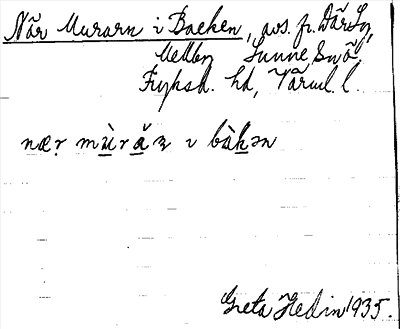 När Murarn i Backen, avs. fr. Där Sö,
Mellby Sunne Snö,
Fryksd. hd, Värml. l.
nær mùrăz ı bàkən
Greta Hedin 1935.